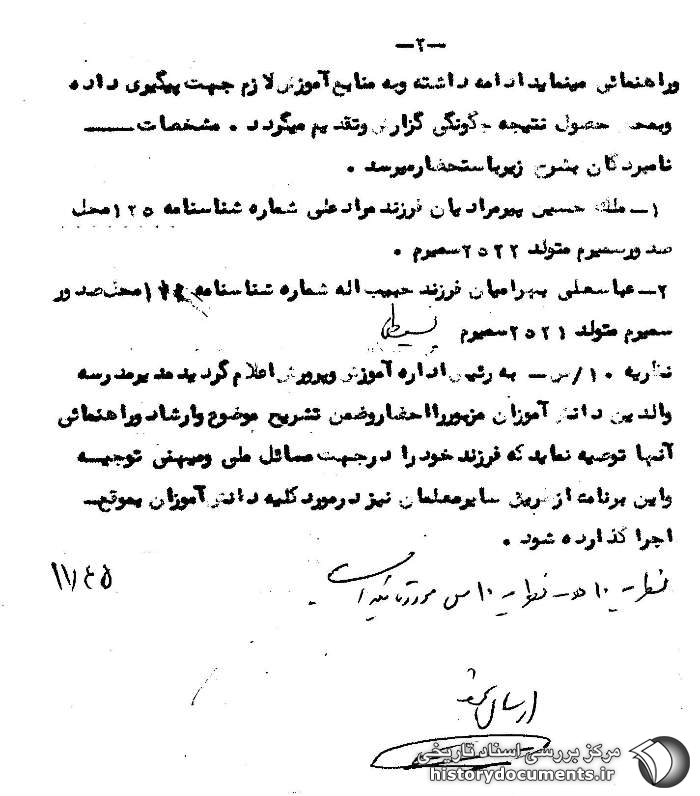 —۲—
وراهنمائی مینماید ادامه داشته وبه منابع آموزش لازم جهت پیگیری داده
وبمحض حصول نتیجه چگونگی گزارش وتقدیم میگردد . مشخصات
نامبردگان بشرح زیرباستحضارمیرسد .
۱— ملک حسین پیرمرادیان فرزند مرادعلی شماره شناسنامه ۱۲۵ محل
صدورسمیرم متولد ۲۵۲۲ سمیرم .
۲— عباسعلی بهرامیان فرزند حبیب اله شماره شناسنامه محل صدور
سمیرم متولد ۲۵۲۱ سمیرم
نظریه ۱۰/س — به رئیس اداره آموزش وپرورش اعلام گردید مدیرمدرسه
والدین دانش آموزان مزبوررااحضاروضمن تشریح موضوع وارشاد وراهنمائی
آنها توصیه نماید که فرزند خود را درجهت مسائل ملی ومیهنی توجیسه
واین برنامه ازطریق سایرمعلمان نیز درمورد کلیه دانش آموزان بموقع
اجرا گذارده شود .
نظریه ۱۰ هـ — نظریه ۱۰ س مورد تائید است .
ارسال شد
مرکز بررسی اسناد تاریخی
historydocuments.ir